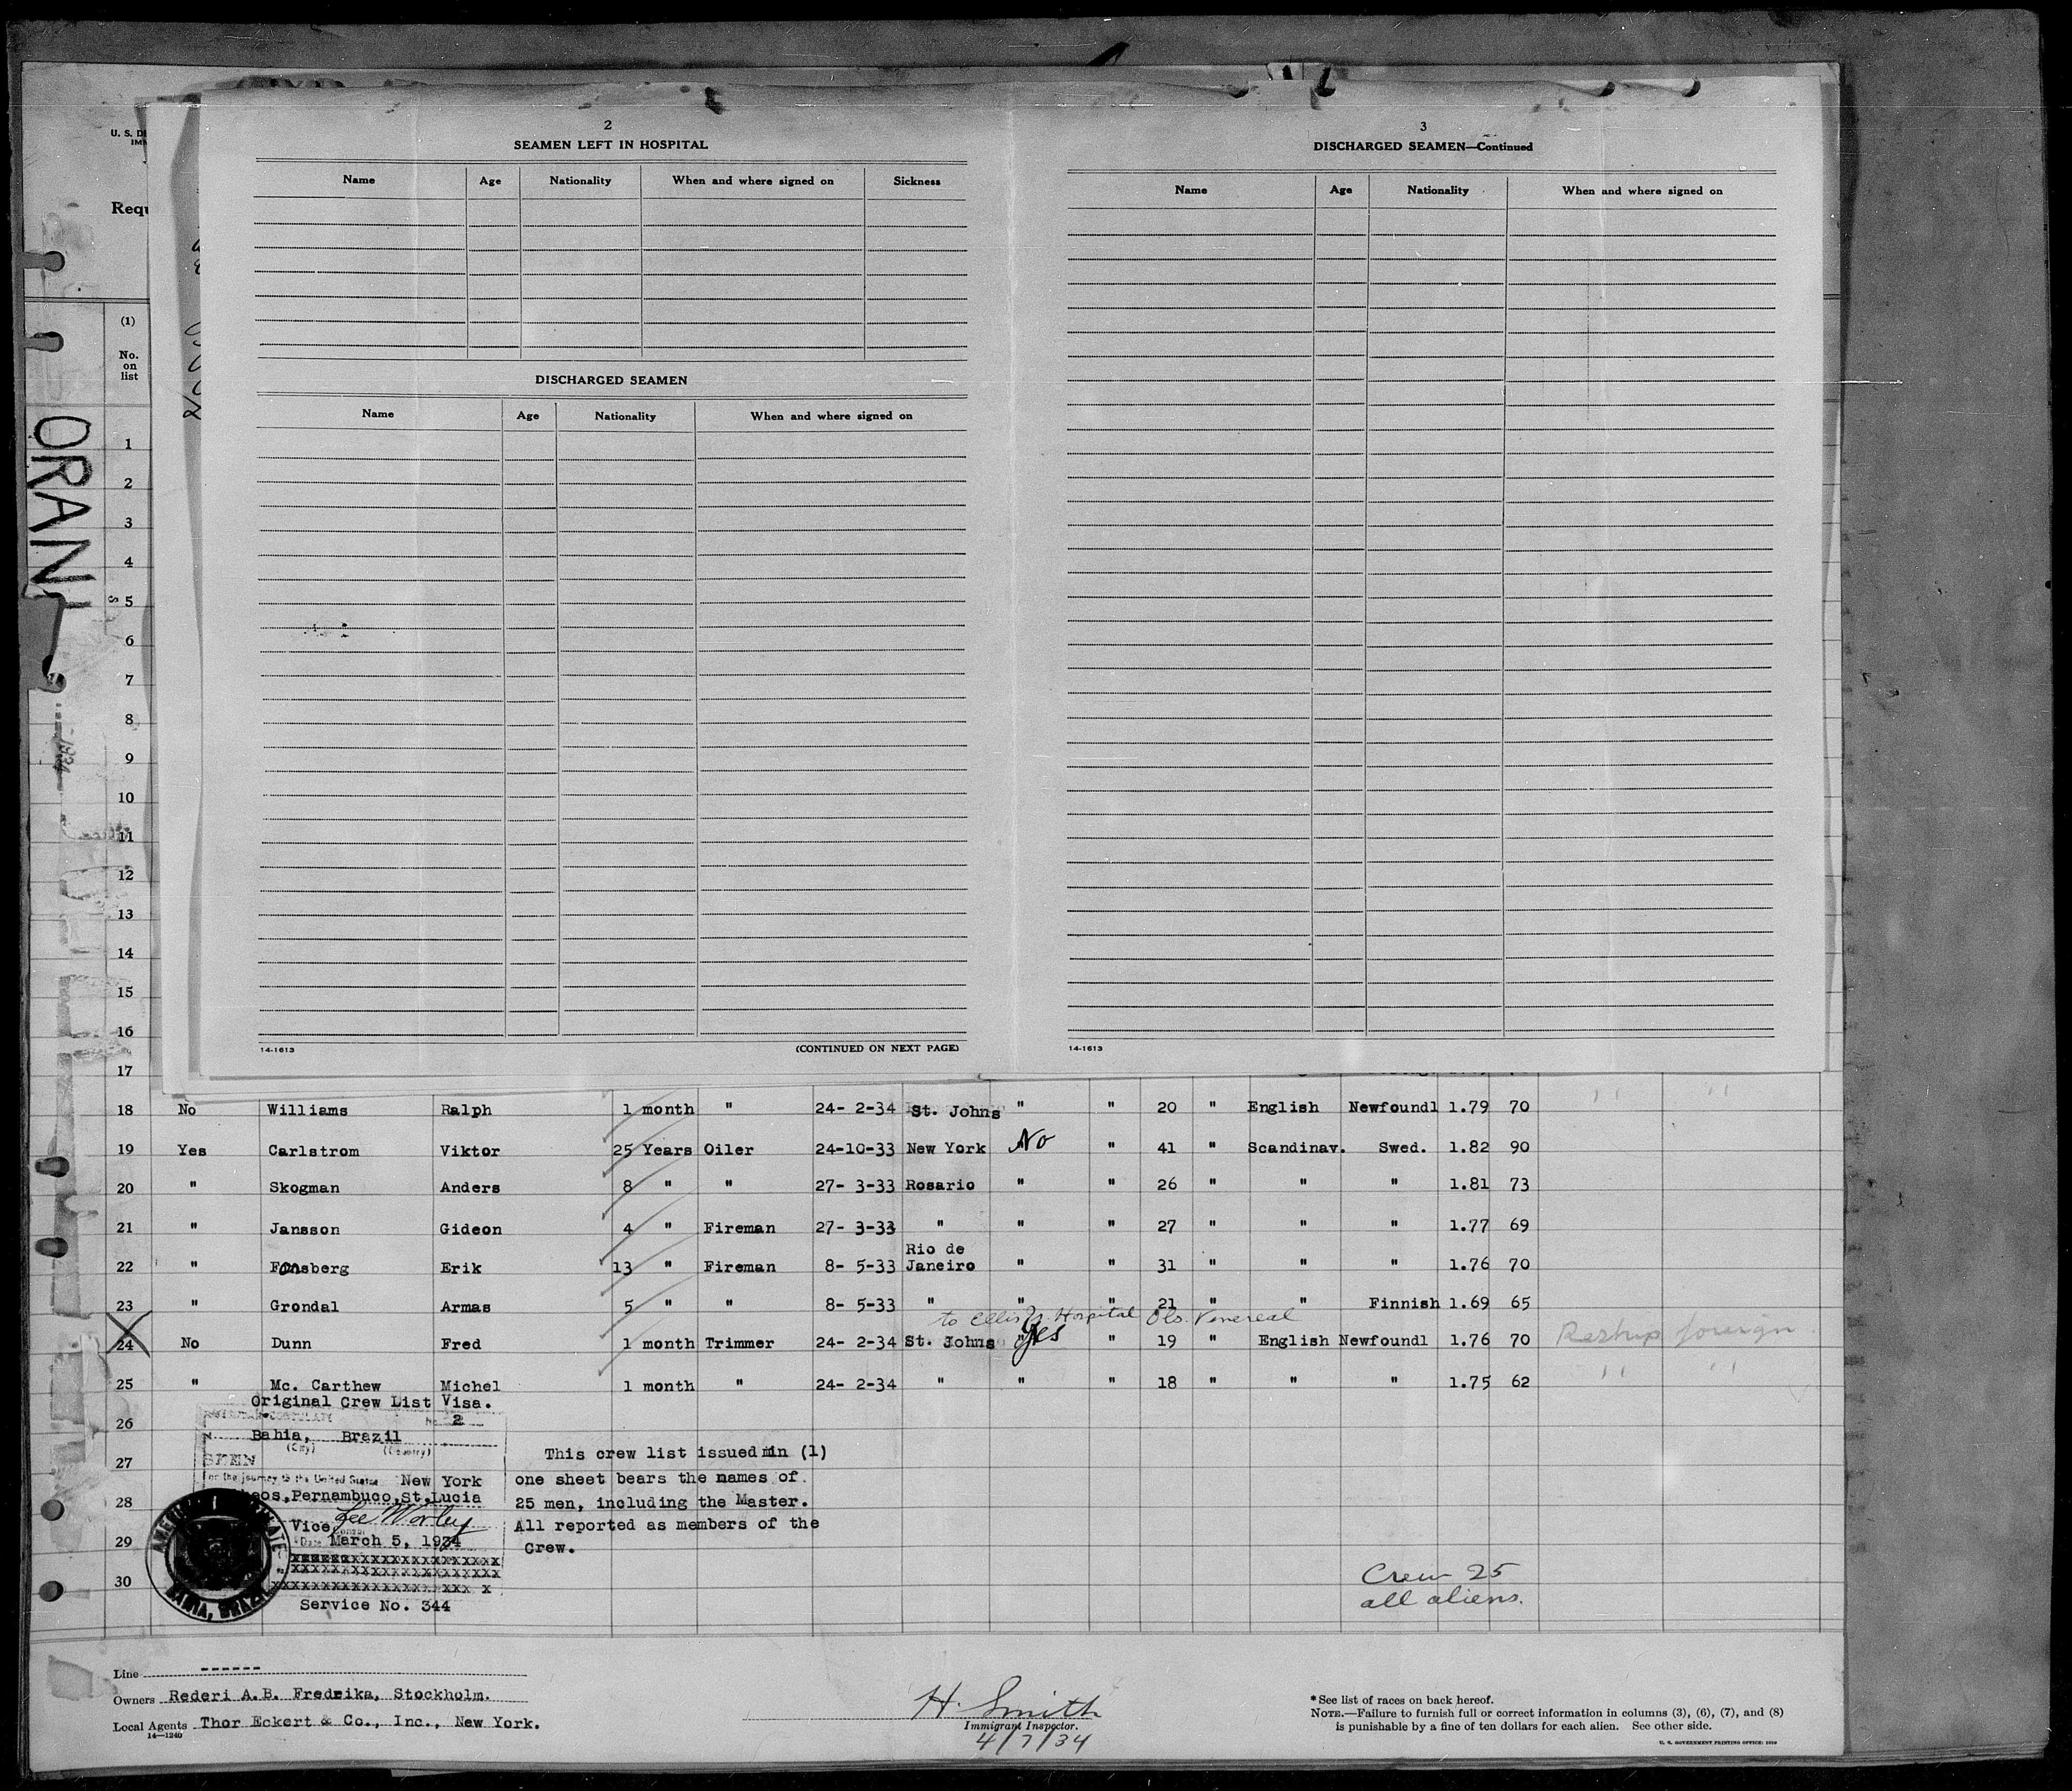 U. S. DE
IMM
Requ
(1)
No.
on
list
ORAN
1934
2
SEAMEN LEFT IN HOSPITAL
Name Age Nationality When and where signed on Sickness
DISCHARGED SEAMEN
Name Age Nationality When and where signed on
14-1613 (CONTINUED ON NEXT PAGE)
3
DISCHARGED SEAMEN—Continued
Name Age Nationality When and where signed on
14-1613
1
2
3
4
5
6
7
8
9
10
11
12
13
14
15
16
17
18 No Williams Ralph 1 month " 24- 2-34 St. Johns " " 20 " English Newfoundl 1.79 70 " "
19 Yes Carlstrom Viktor 25 Years Oiler 24-10-33 New York No " 41 " Scandinav. Swed. 1.82 90
20 " Skogman Anders 8 " " 27- 3-33 Rosario " " 26 " " " 1.81 73
21 " Jansson Gideon 4 " Fireman 27- 3-33 " " " 27 " " " 1.77 69
22 " Fonsberg Erik 13 " Fireman 8- 5-33 Rio de Janeiro " " 31 " " " 1.76 70
23 " Grondal Armas 5 " " 8- 5-33 " " " 21 " " Finnish 1.69 65
to Ellis Is. Hospital Obs. Venereal
24 No Dunn Fred 1 month Trimmer 24- 2-34 St. Johns Yes " 19 " English Newfoundl 1.76 70 Reship foreign
25 " Mc. Carthew Michel 1 month " 24- 2-34 " " " 18 " " " 1.75 62 " "
26
27
28
29
30
Original Crew List Visa.
AMERICAN CONSULATE No. 2
Bahia, Brazil
(City) (Country)
SEEN
For the journey to the United States New York
eos, Pernambuco, St. Lucia
Lee Worley
Vice Consul
Date March 5, 1934
Service No. 344
BAHIA, BRAZIL
This crew list issued in (1)
one sheet bears the names of
25 men, including the Master.
All reported as members of the
Crew.
Crew 25
all aliens.
Line ------
Owners Rederi A.B. Fredrika, Stockholm.
Local Agents Thor Eckert & Co., Inc., New York.
14—1240
H. Smith
Immigrant Inspector.
4/7/34
*See list of races on back hereof.
NOTE.—Failure to furnish full or correct information in columns (3), (6), (7), and (8)
is punishable by a fine of ten dollars for each alien. See other side.